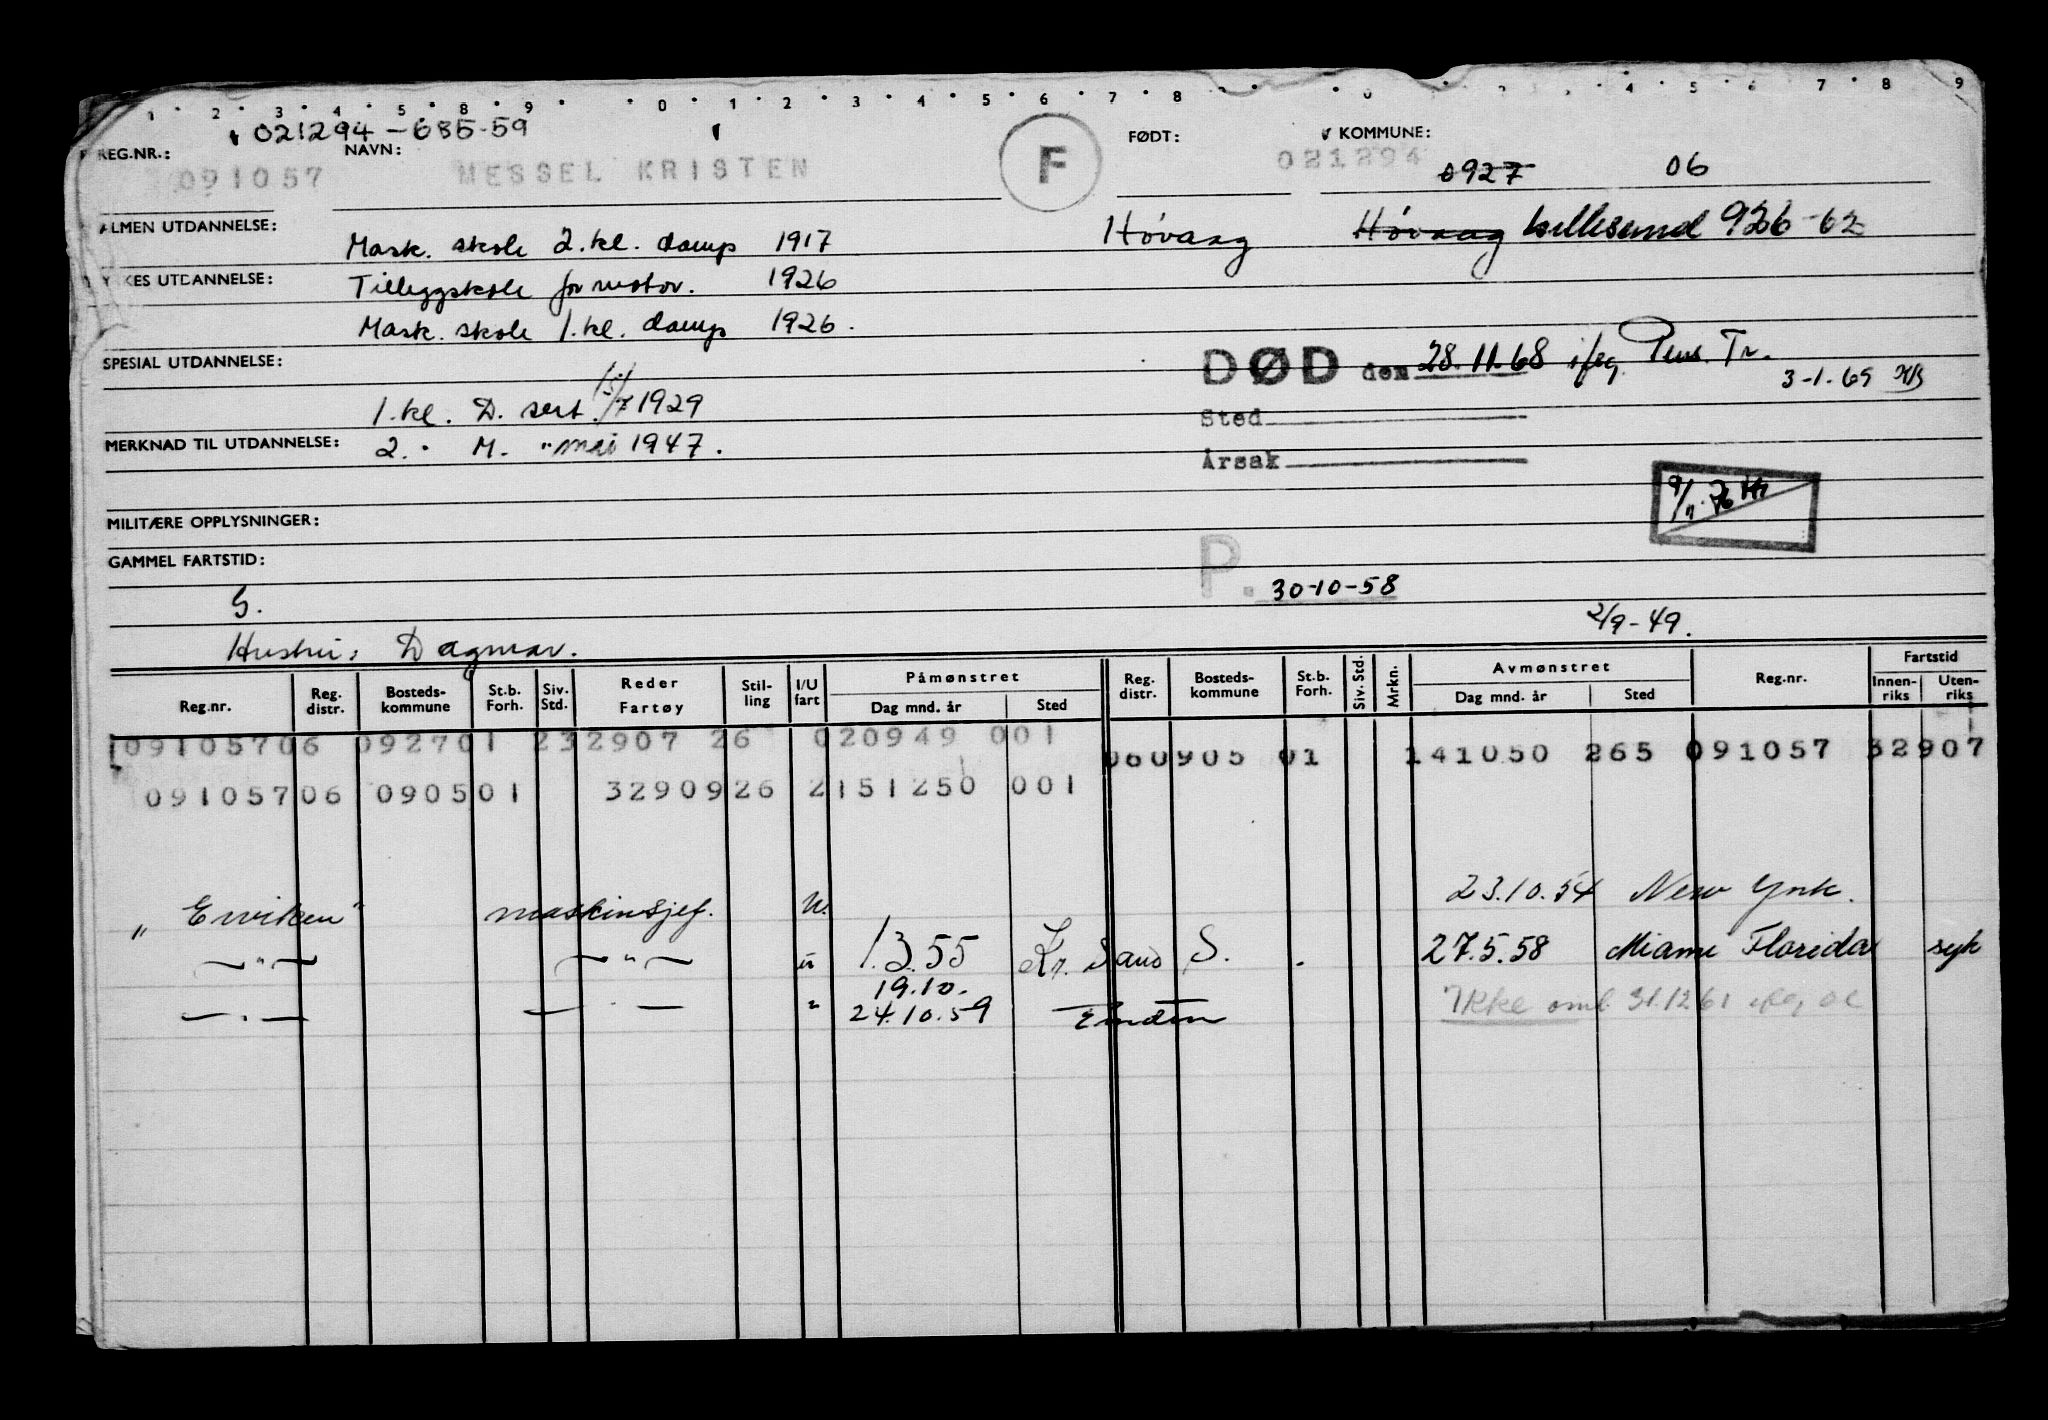 1 2 3 4 5 8 9 0 1 2 3 4 5 6 7 8 0 4 5 6 7 8 9
021294-685-59
REG.NR.: NAVN: FØDT: KOMMUNE:
091057 MESSEL KRISTEN F 021294 0927 06
ALMEN UTDANNELSE: Mask. skole 2.kl. damp 1917 Høvaag Høvaag Lillesand 926-62
YRKES UTDANNELSE: Tilleggskole for motor. 1926
Mask. skole 1.kl. damp 1926.
SPESIAL UTDANNELSE:
DØD den 28.11.68 ifög. Pens. Tr.
3-1.69
1.kl. D. sert. 15/7 1929
Sted
MERKNAD TIL UTDANNELSE: 2. " M. " mai 1947.
Årsak
9/11.76
MILITÆRE OPPLYSNINGER:
GAMMEL FARTSTID:
P. 30-10-58
G.
2/9-49.
Hustru: Dagmar.
Reg.nr. Reg. distr. Bosteds-kommune St.b. Forh. Siv. Std. Reder Fartøy Stil-ling I/U fart Påmønstret Dag mnd. år Sted Reg. distr. Bosteds-kommune St.b. Forh. Siv. Std. Mrkn. Avmønstret Dag mnd. år Sted Reg.nr. Fartstid Innen-riks Uten-riks
09105706 092701 232907 26 020949 001 060905 01 141050 265 091057 32907
09105706 090501 32909 26 2151250 001
23.10.54 New York.
"Erviken" maskinsjef. u.
— " — — " — " 1.3.55 Kr. Sand S. . 27.5.58 Miami Florida syk
19.10.
— " — — " — " 24.10.59 Emden Ikke oml. 31.12.61